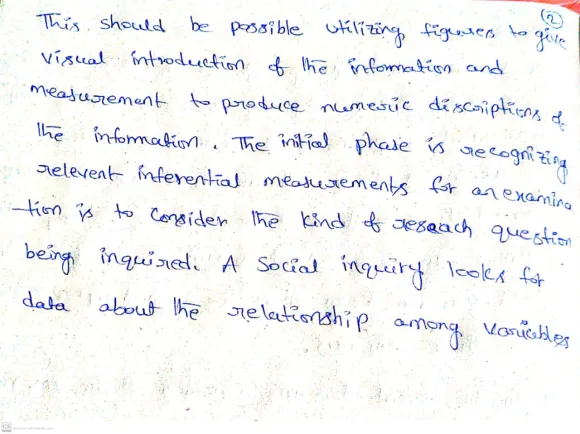 ②
This should be possible utilizing figures to give
visual introduction of the information and
measurement to produce numeric discriptions of
the information. The initial phase is recognizing
relevent inferential measurements for an examina
-tion is to consider the kind of reseach question
being inquired. A Social inquiry looks for
data about the relationship among variables
CS